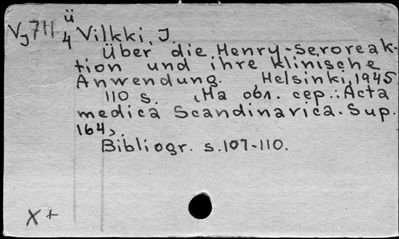 Vj711 ü/4 Vilkki, J.
Über die Henry-Seroreak-
tion und ihre klinische
Anwendung. Helsinki, 1945
110 s. <На обл. сер.: Acta
medica Scandinavica. Sup.
164>.
Bibliogr. s. 107-110.
X+